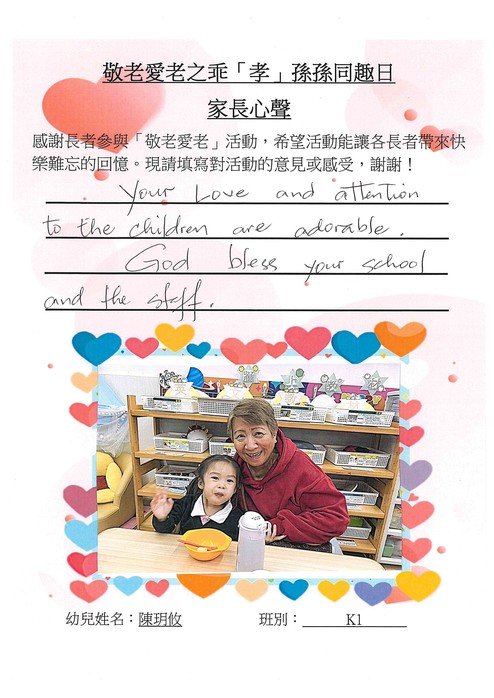 敬老愛老之乖「孝」孫孫同趣日
家長心聲
感謝長者參與「敬老愛老」活動，希望活動能讓各長者帶來快
樂難忘的回憶。現請填寫對活動的意見或感受，謝謝！
Your Love and attention
to the children are adorable.
God bless your school
and the staff.
幼兒姓名：陳玥攸 班別：K1